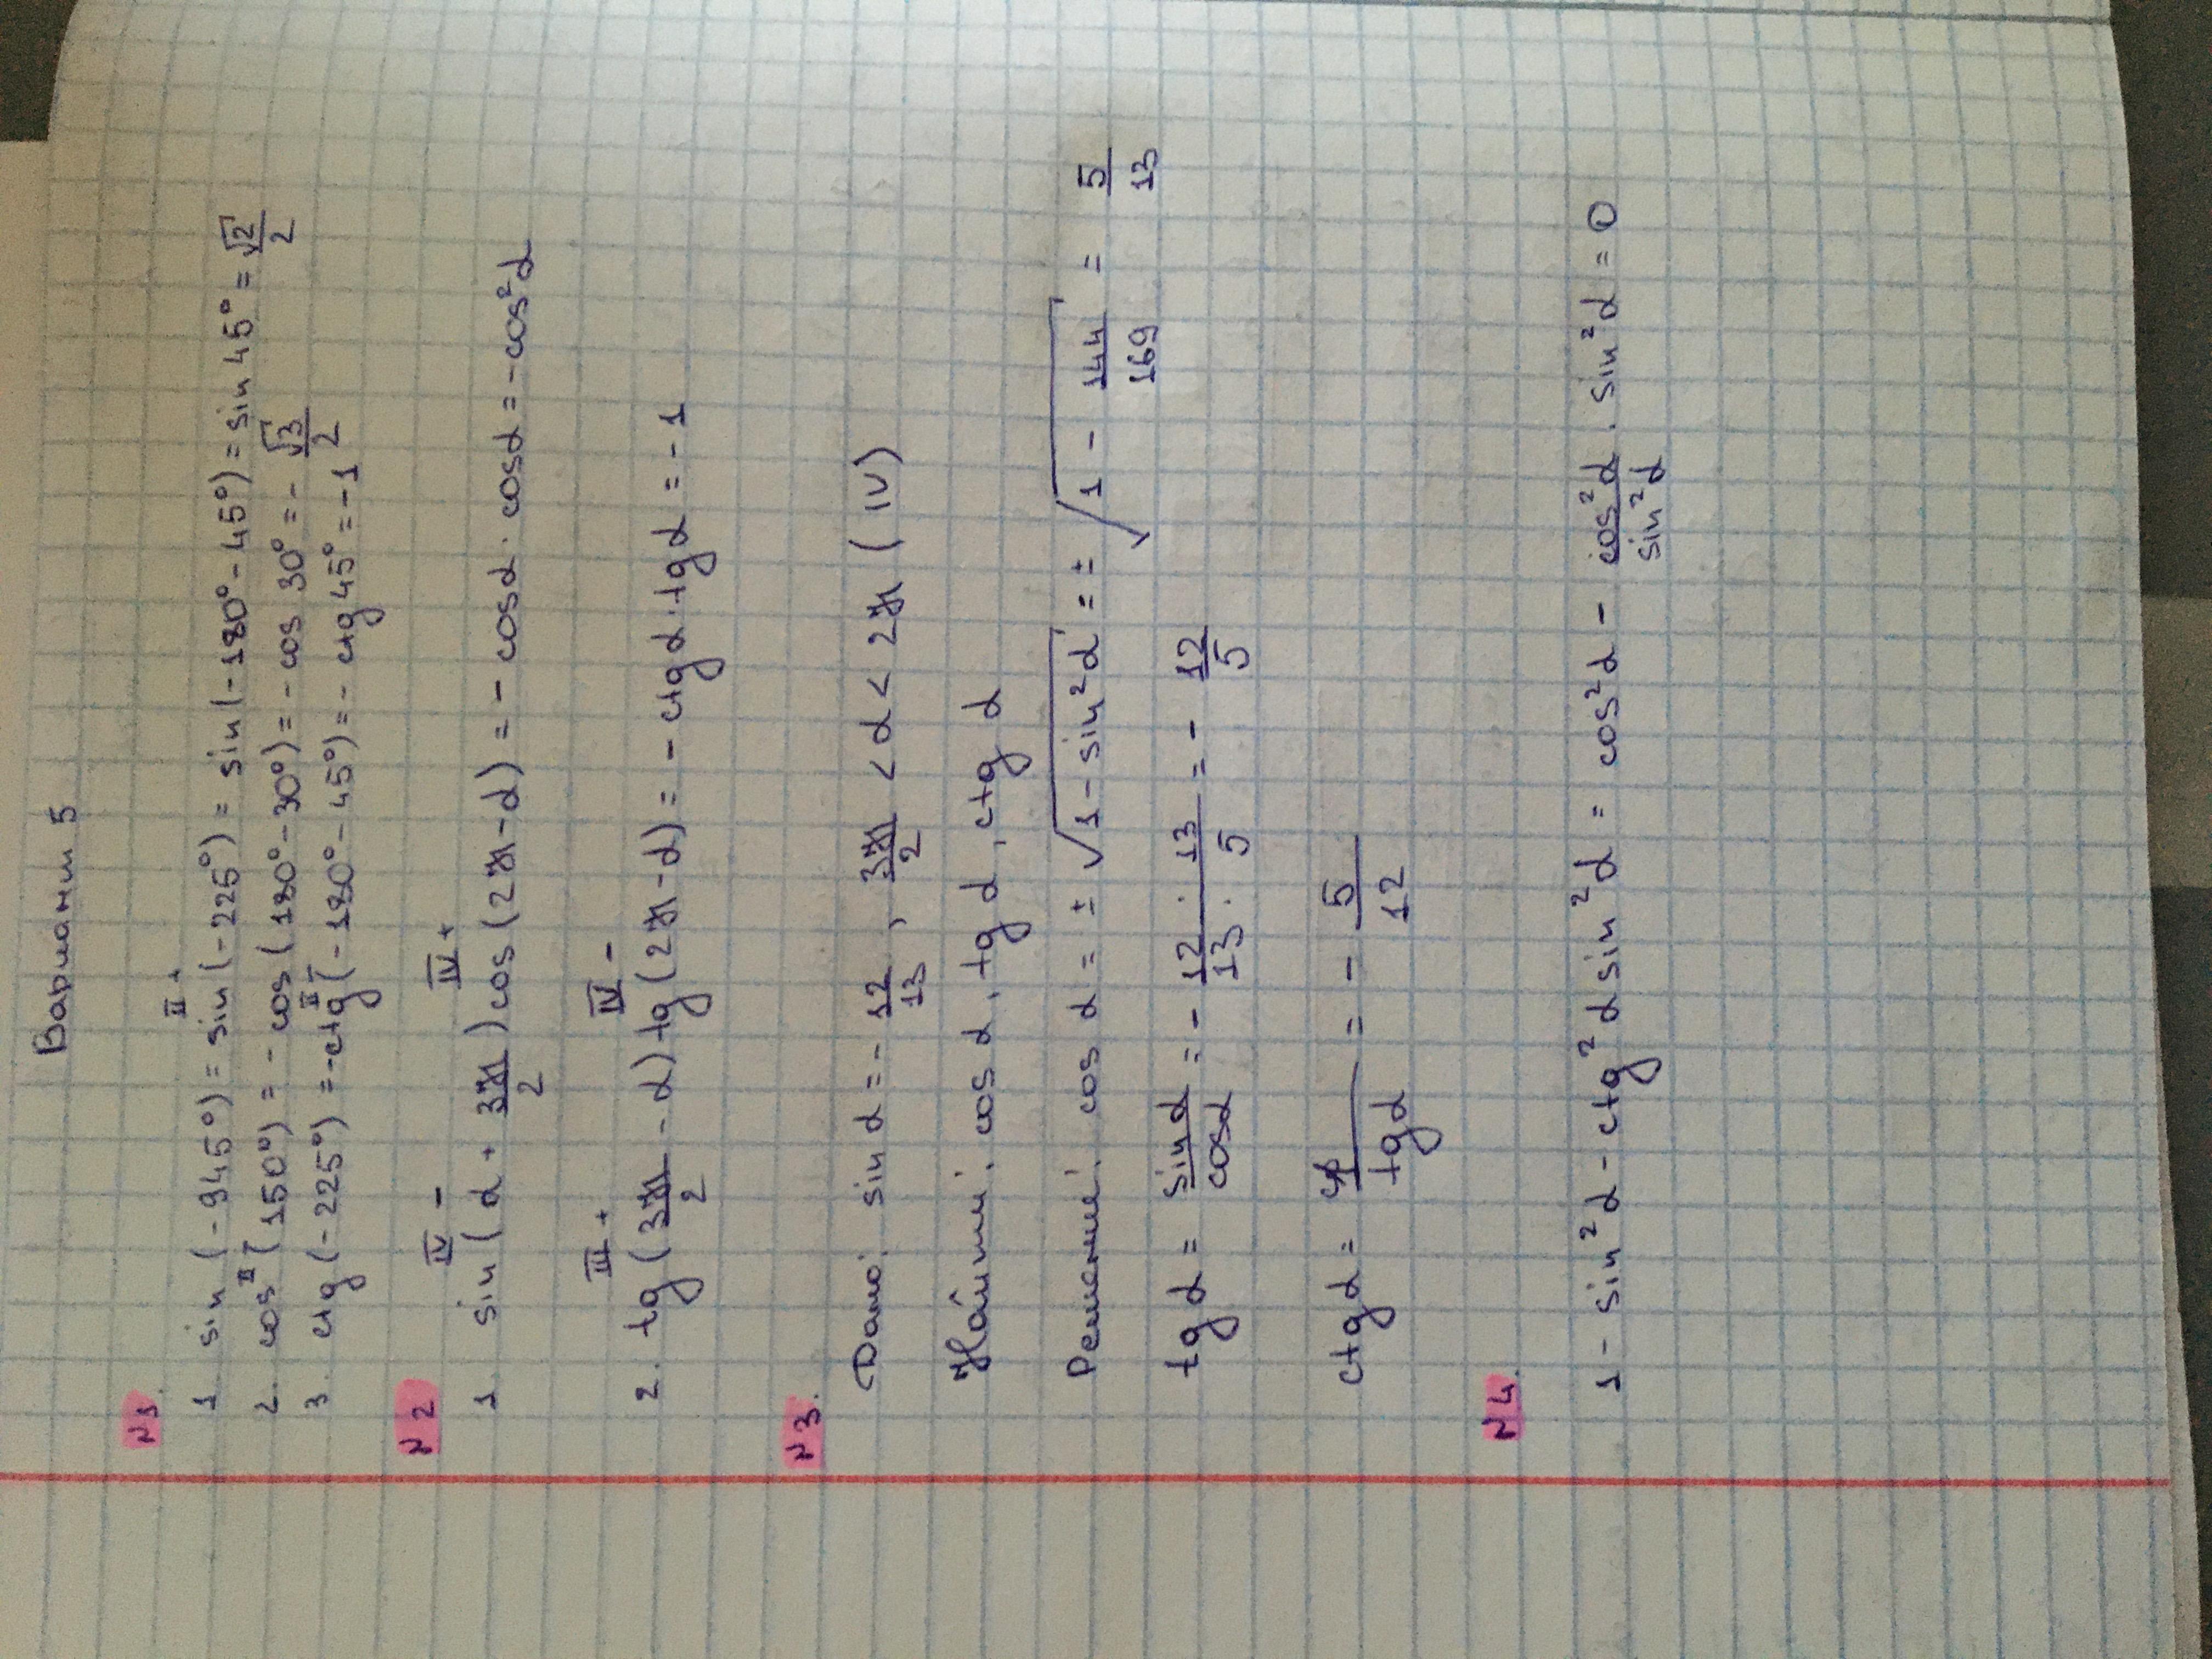 Вариант 5
N1.
II +
1. sin (-945°) = sin (-225°) = sin (-180° - 45°) = sin 45° = √2/2
2. cos II (150°) = - cos (180° - 30°) = - cos 30° = - √3/2
II -
3. ctg (-225°) = -ctg (-180° - 45°) = - ctg 45° = -1
N2
IV - IV +
1. sin (α + 3π/2) cos (2π - α) = - cosα · cosα = - cos²α
III + IV -
2. tg (3π/2 - α) tg (2π - α) = - ctg α · tg α = - 1
N3.
Дано: sin α = - 12/13 , 3π/2 < α < 2π (IV)
Найти: cos α, tg α, ctg α
Решение: cos α = ± √1 - sin²α = ± √1 - 144/169 = 5/13
tg α = sinα/cosα = - 12 · 13/13 · 5 = - 12/5
ctg α = 1/tgα = - 5/12
N4.
1 - sin²α - ctg²α sin²α = cos²α - cos²α/sin²α · sin²α = 0